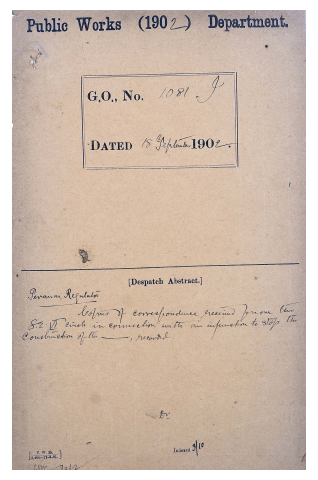 Public Works (1902) Department.
G.O., No. 1081 I
DATED 18 September 1902.
[Despatch Abstract.]
Regulator
Copies of correspondence received from the
S.E. VI Circle in connection with an injunction to stop the
Construction of the ———, recorded
Issued 9/10